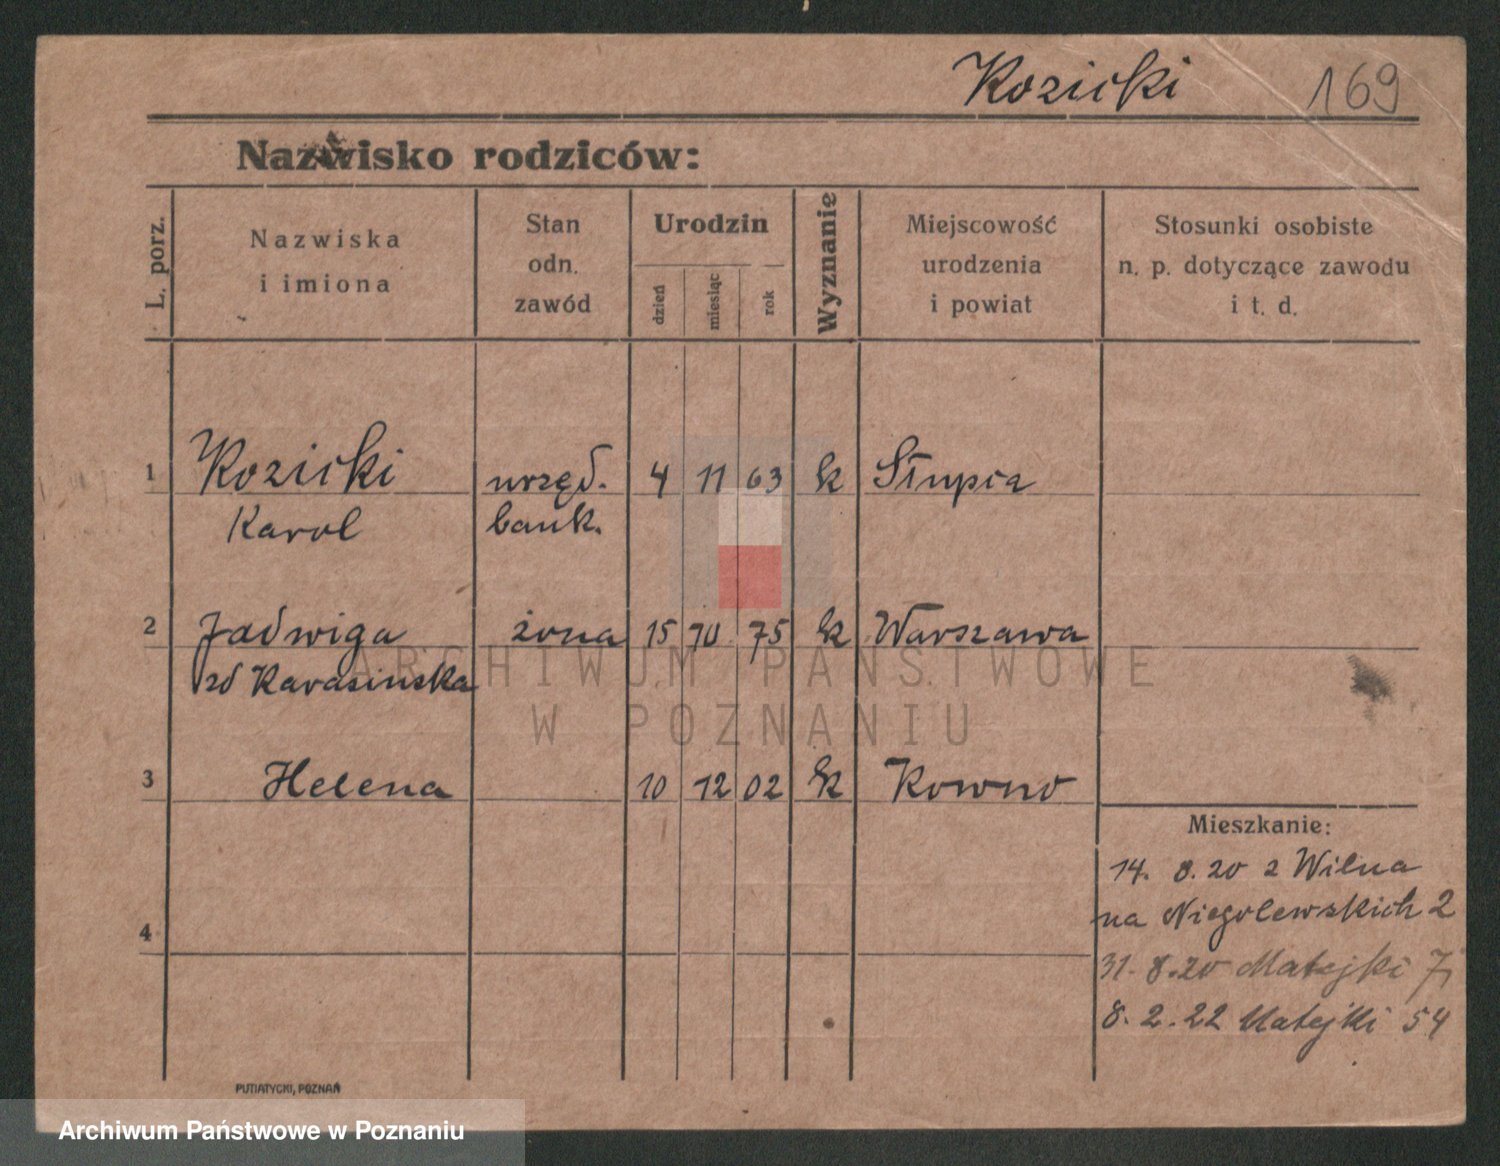 Kozicki 169
Nazwisko rodziców:
L. porz.
Nazwiska
i imiona
Stan
odn.
zawód
Urodzin
dzień
miesiąc
rok
Wyznanie
Miejscowość
urodzenia
i powiat
Stosunki osobiste
n. p. dotyczące zawodu
i t. d.
1 Kozicki urzęd. 4 11 63 k Słupia
Karol bank.
2 Jadwiga żona 15 10 75 k Warszawa
zd Karasinska
ARCHIWUM PAŃSTWOWE
W POZNANIU
3 Helena 10 12 02 k Kowno
Mieszkanie:
14. 8. 20 z Wilna
na Niegolewskich 2
31. 8. 20 Matejki
8. 2. 22 Matejki 54
4
PUTIATYCKI, POZNAŃ
Archiwum Państwowe w Poznaniu